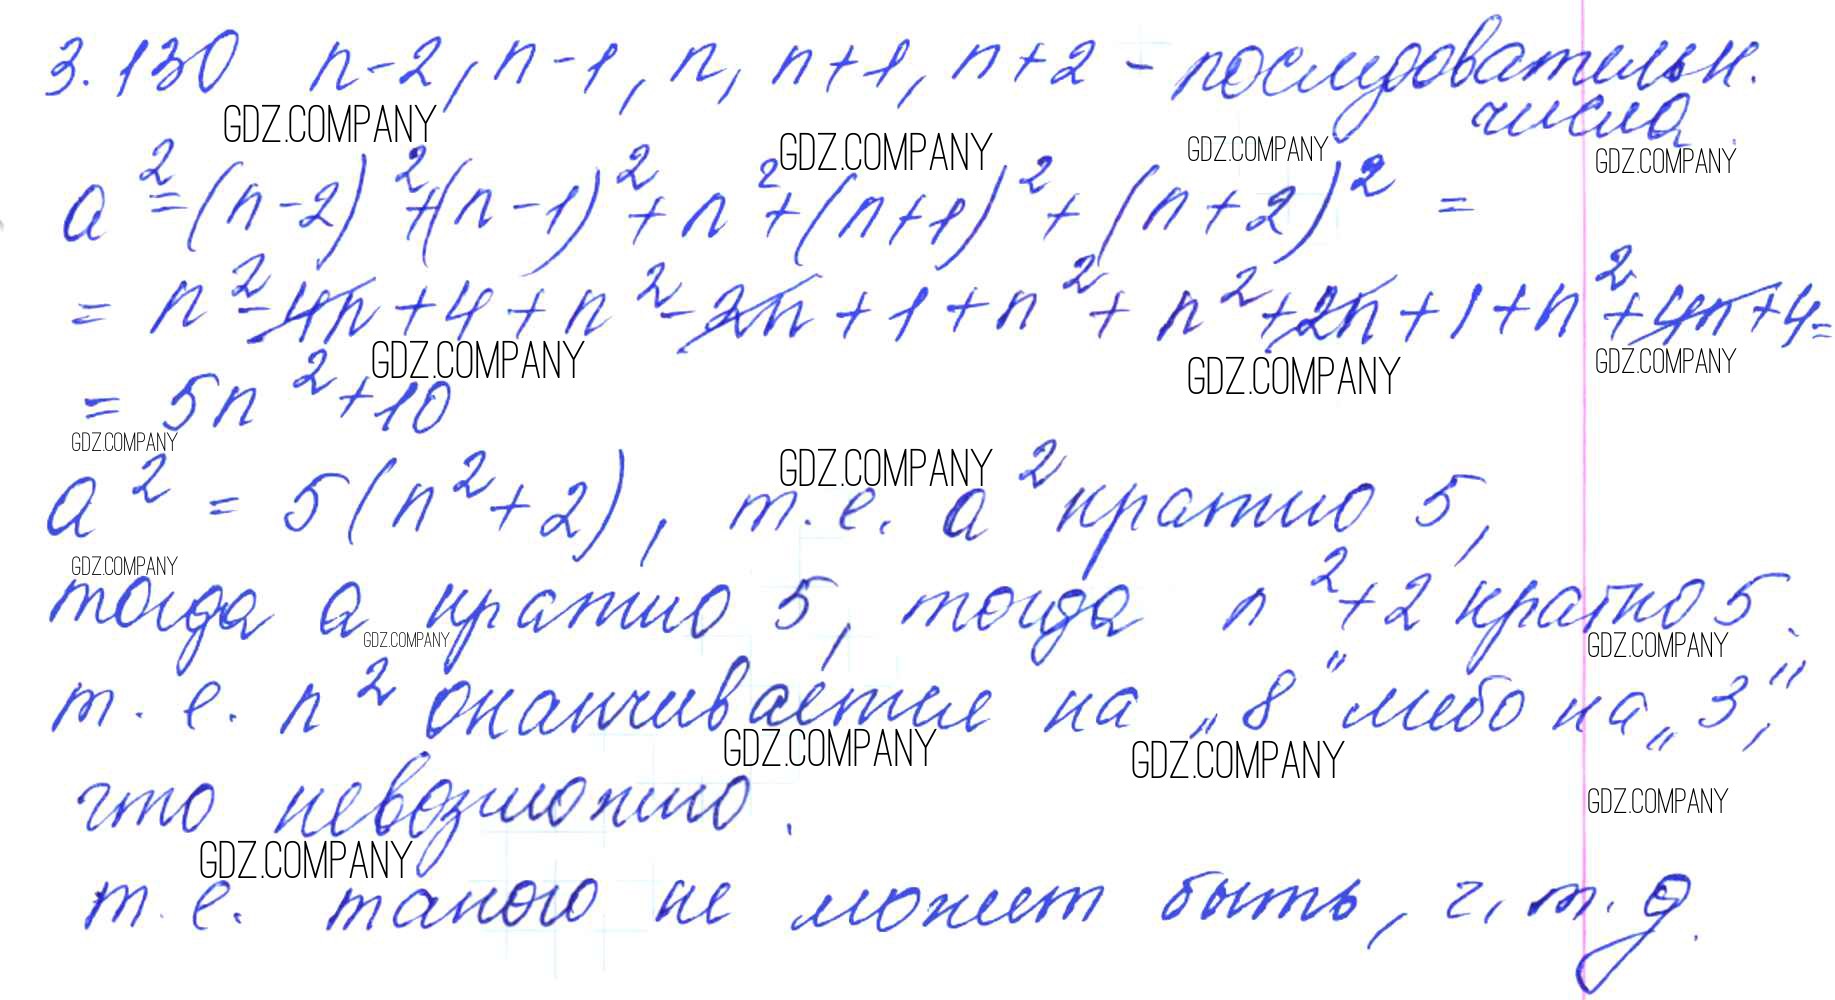 3.130 n-2, n-1, n, n+1, n+2 - последовательн.
числа.
GDZ.COMPANY GDZ.COMPANY GDZ.COMPANY GDZ.COMPANY
a²=(n-2)²+(n-1)²+n²+(n+1)²+(n+2)²=
=n²-4n+4+n²-2n+1+n²+n²+2n+1+n²+4n+4=
GDZ.COMPANY GDZ.COMPANY GDZ.COMPANY
=5n²+10
GDZ.COMPANY GDZ.COMPANY
a²=5(n²+2), т.е. a² кратно 5,
GDZ.COMPANY
тогда a кратно 5, тогда n²+2 кратно 5.
GDZ.COMPANY GDZ.COMPANY
т.е. n² оканчивается на „8" либо на „3",
GDZ.COMPANY GDZ.COMPANY
что невозможно.
GDZ.COMPANY
GDZ.COMPANY
т.е. такого не может быть, ч.т.д.